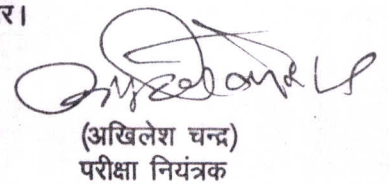 र।
(अखिलेश चन्द्र)
परीक्षा नियंत्रक